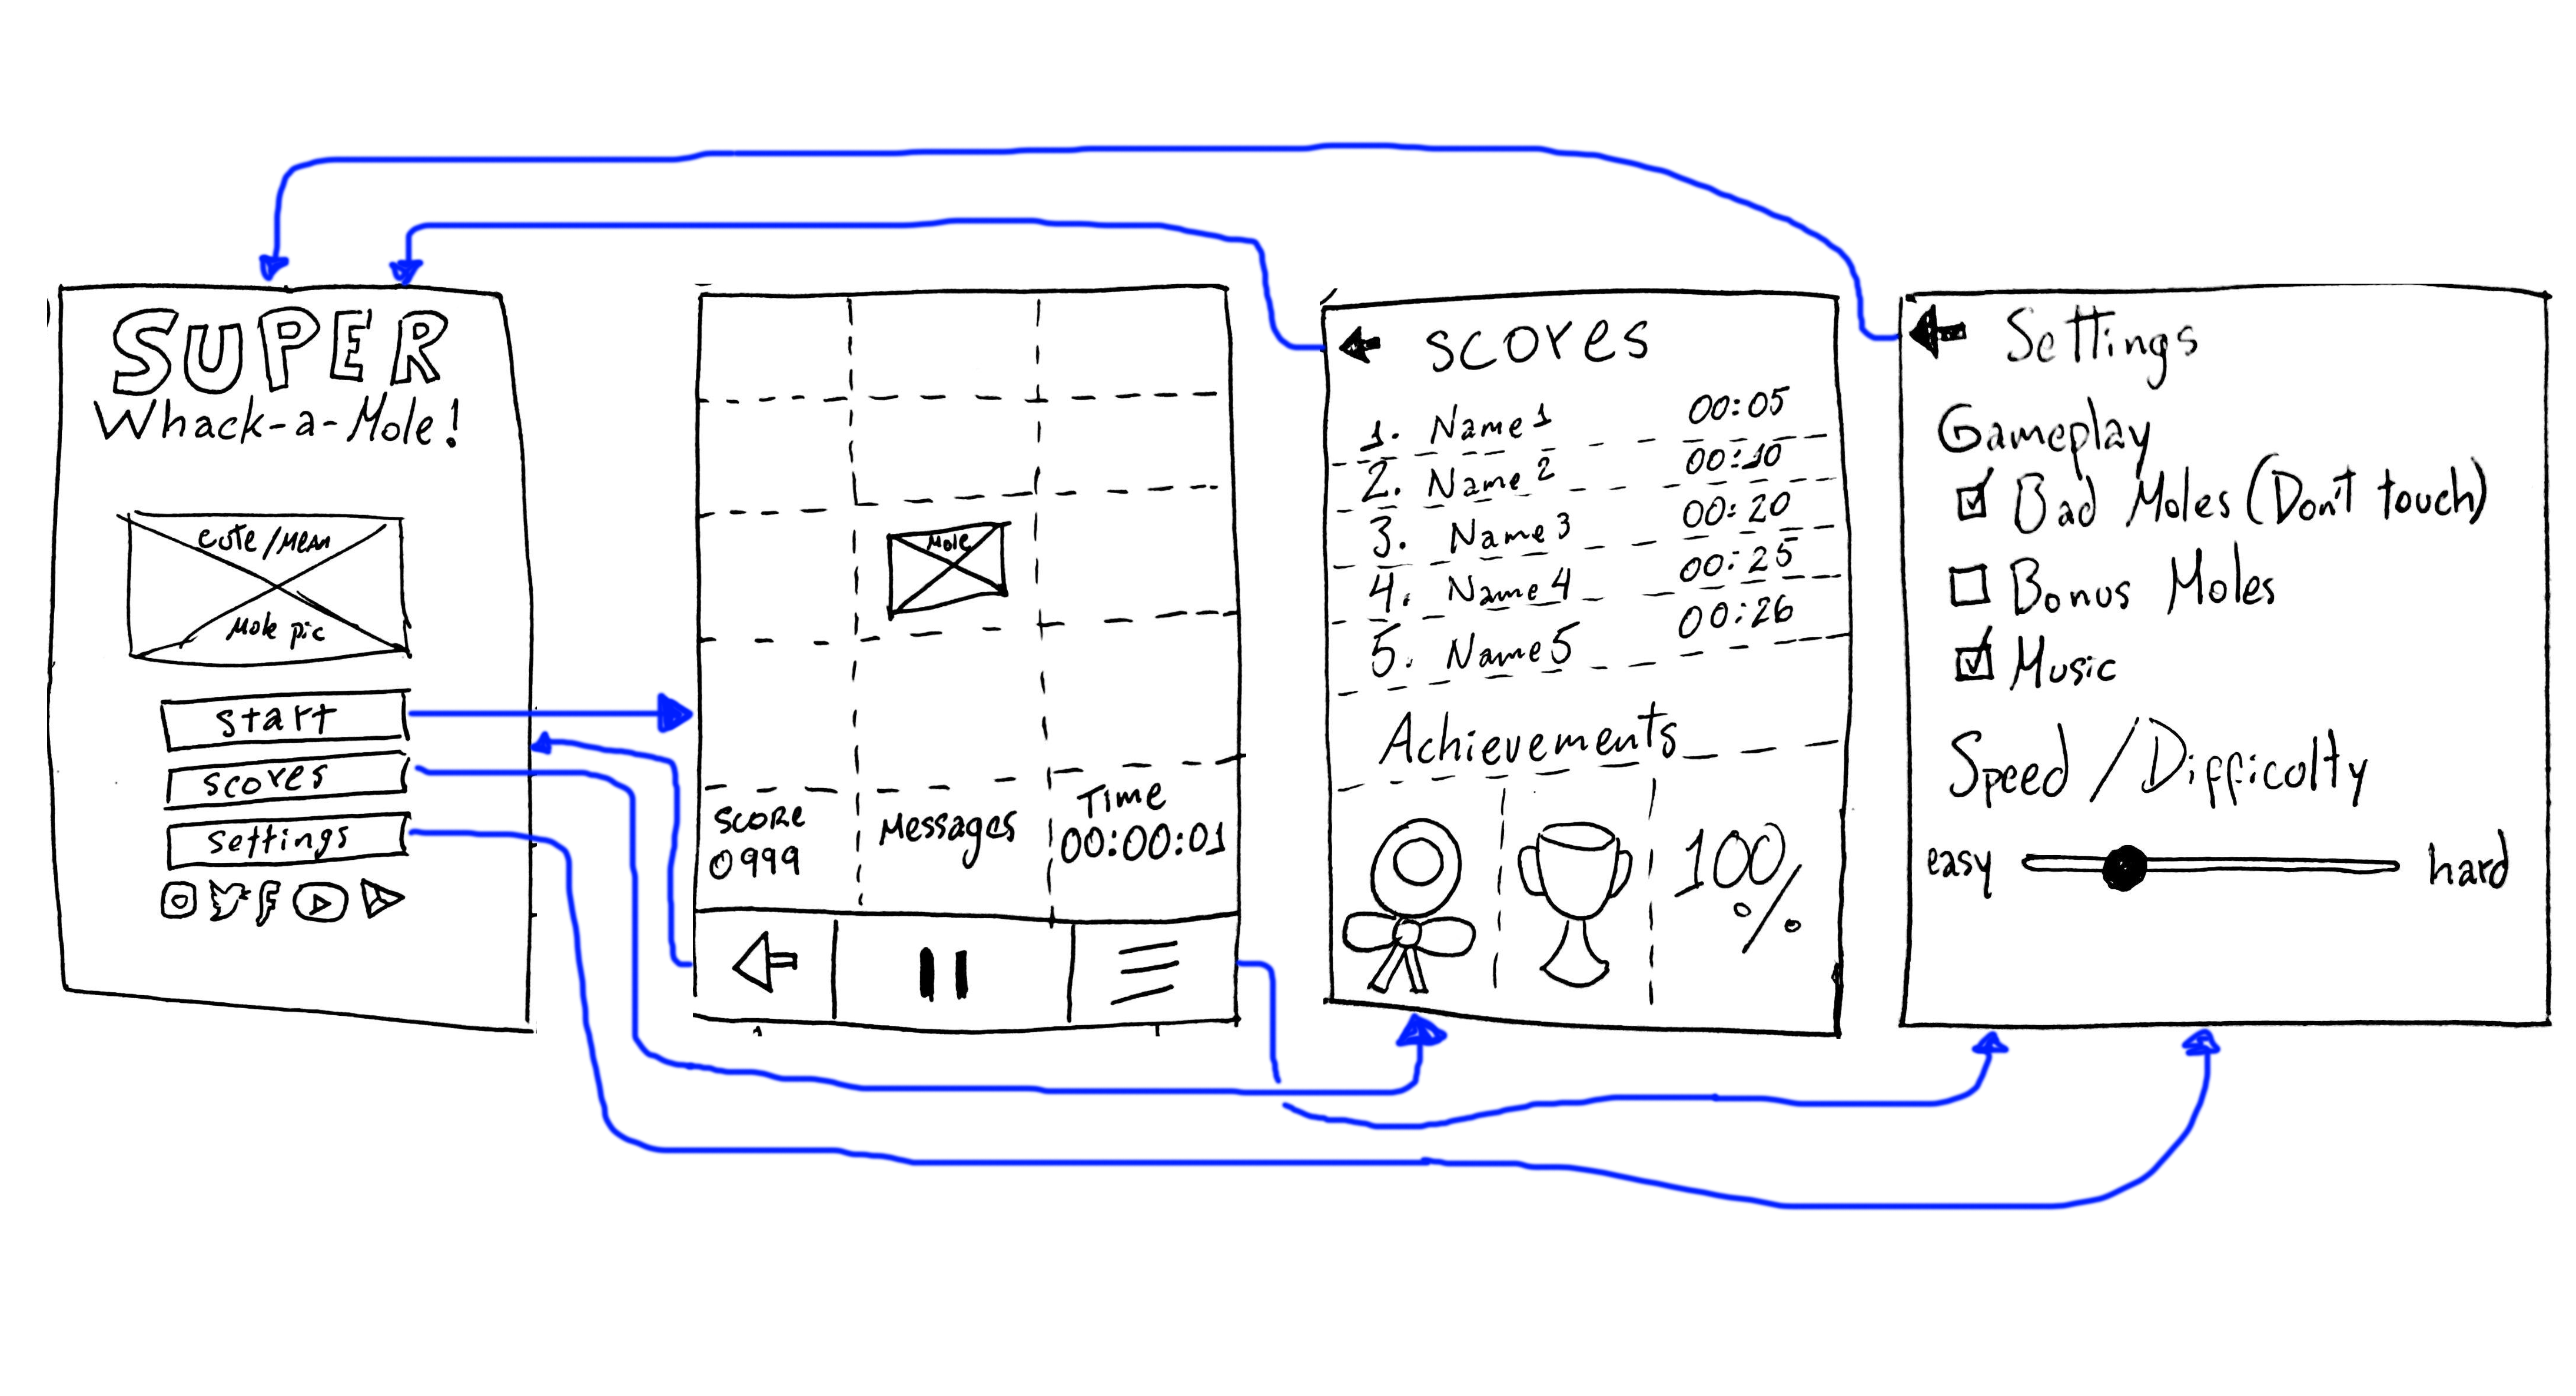 SUPER
Whack-a-Mole!
cute/Mean
Mole pic
start
scores
settings
Mole
SCORE
0999
Messages
Time
00:00:01
scores
1. Name1 00:05
2. Name2 00:10
3. Name3 00:20
4. Name4 00:25
5. Name5 00:26
Achievements
100%
Settings
Gameplay
Bad Moles (Don't touch)
Bonus Moles
Music
Speed / Difficolty
easy hard